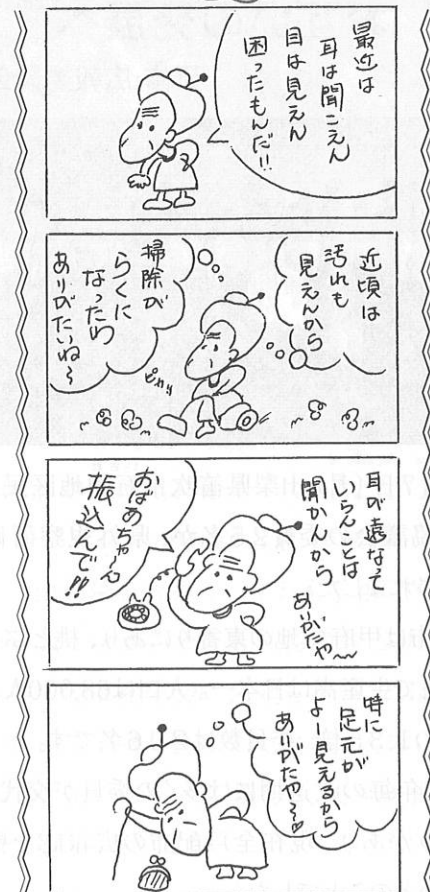 最近は
耳は聞こえん
目は見えん
困ったもんだ!!
近頃は
汚れも
見えんから
掃除が
らくに
なったわ
ありがたいね〜
ピカッ
耳が遠なって
しらんことは
聞かんから
ありがたや〜
おばあちゃ〜ん
振込んで!!
特に
足元が
よー見えるから
ありがたや〜♡